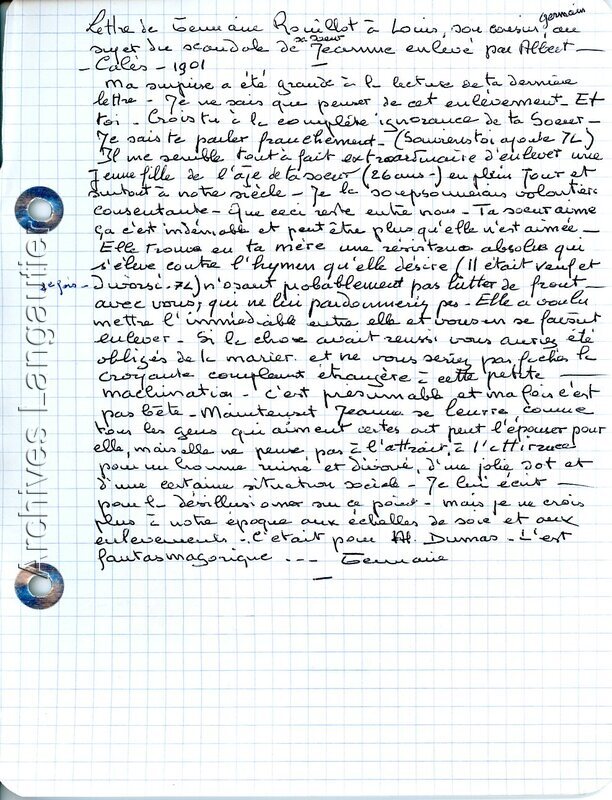 Lettre de Germaine Rouillot à Louis, son cousin germain, au
sujet du scandale de sa sœur Jeanne enlevé par Albert -
- Calès - 1901 -
Ma surprise a été grande à la lecture de ta dernière
lettre - Je ne sais que penser de cet enlèvement - Et
toi - Crois tu à la complète ignorance de ta Soeur -
Je sais te parler franchement - (Souviens toi ajoute JL)
Il me semble tout à fait extraordinaire d'enlever une
Jeune fille de l'âge de ta soeur (26 ans -) en plein Jour et
surtout à notre siècle - Je la soupsonnais volontiers
consentante - Que ceci reste entre nous - Ta soeur aime
ça c'est indéniable et peut être plus qu'elle n'est aimée -
Elle trouve en ta mère une résistance absolue qui
s'élève contre l'hymen qu'elle désire (Il était veuf et
divorsi - JL) n'osant probablement pas lutter de front
avec vous, qui ne lui pardonneriez pas - Elle a voulu
mettre l'immédiable entre elle et vous en se faisant
enlever - Si la chose avait réussi vous auriez été
obligés de la marier et ne vous seriez pas fachés la
croyante complement étrangère à cette petite
machination - C'est présumable et ma fois c'est
pas bête - Maintenant Jeanne se leurre, comme
tous les gens qui aiment certes peut l'épouser pour
elle, mais elle ne pense pas à l'attrait, à l'attirance
pour un homme ruiné et divorcé, d'une jolie dot et
d'une certaine situation sociale - Je lui écrit
pour la désillusionner sur ce point - mais je ne crois
plus à notre époque aux échelles de soie et aux
enlevements - C'était pour Al. Dumas - C'est
fantasmagorique --- Germaine
-
Archives Langautier